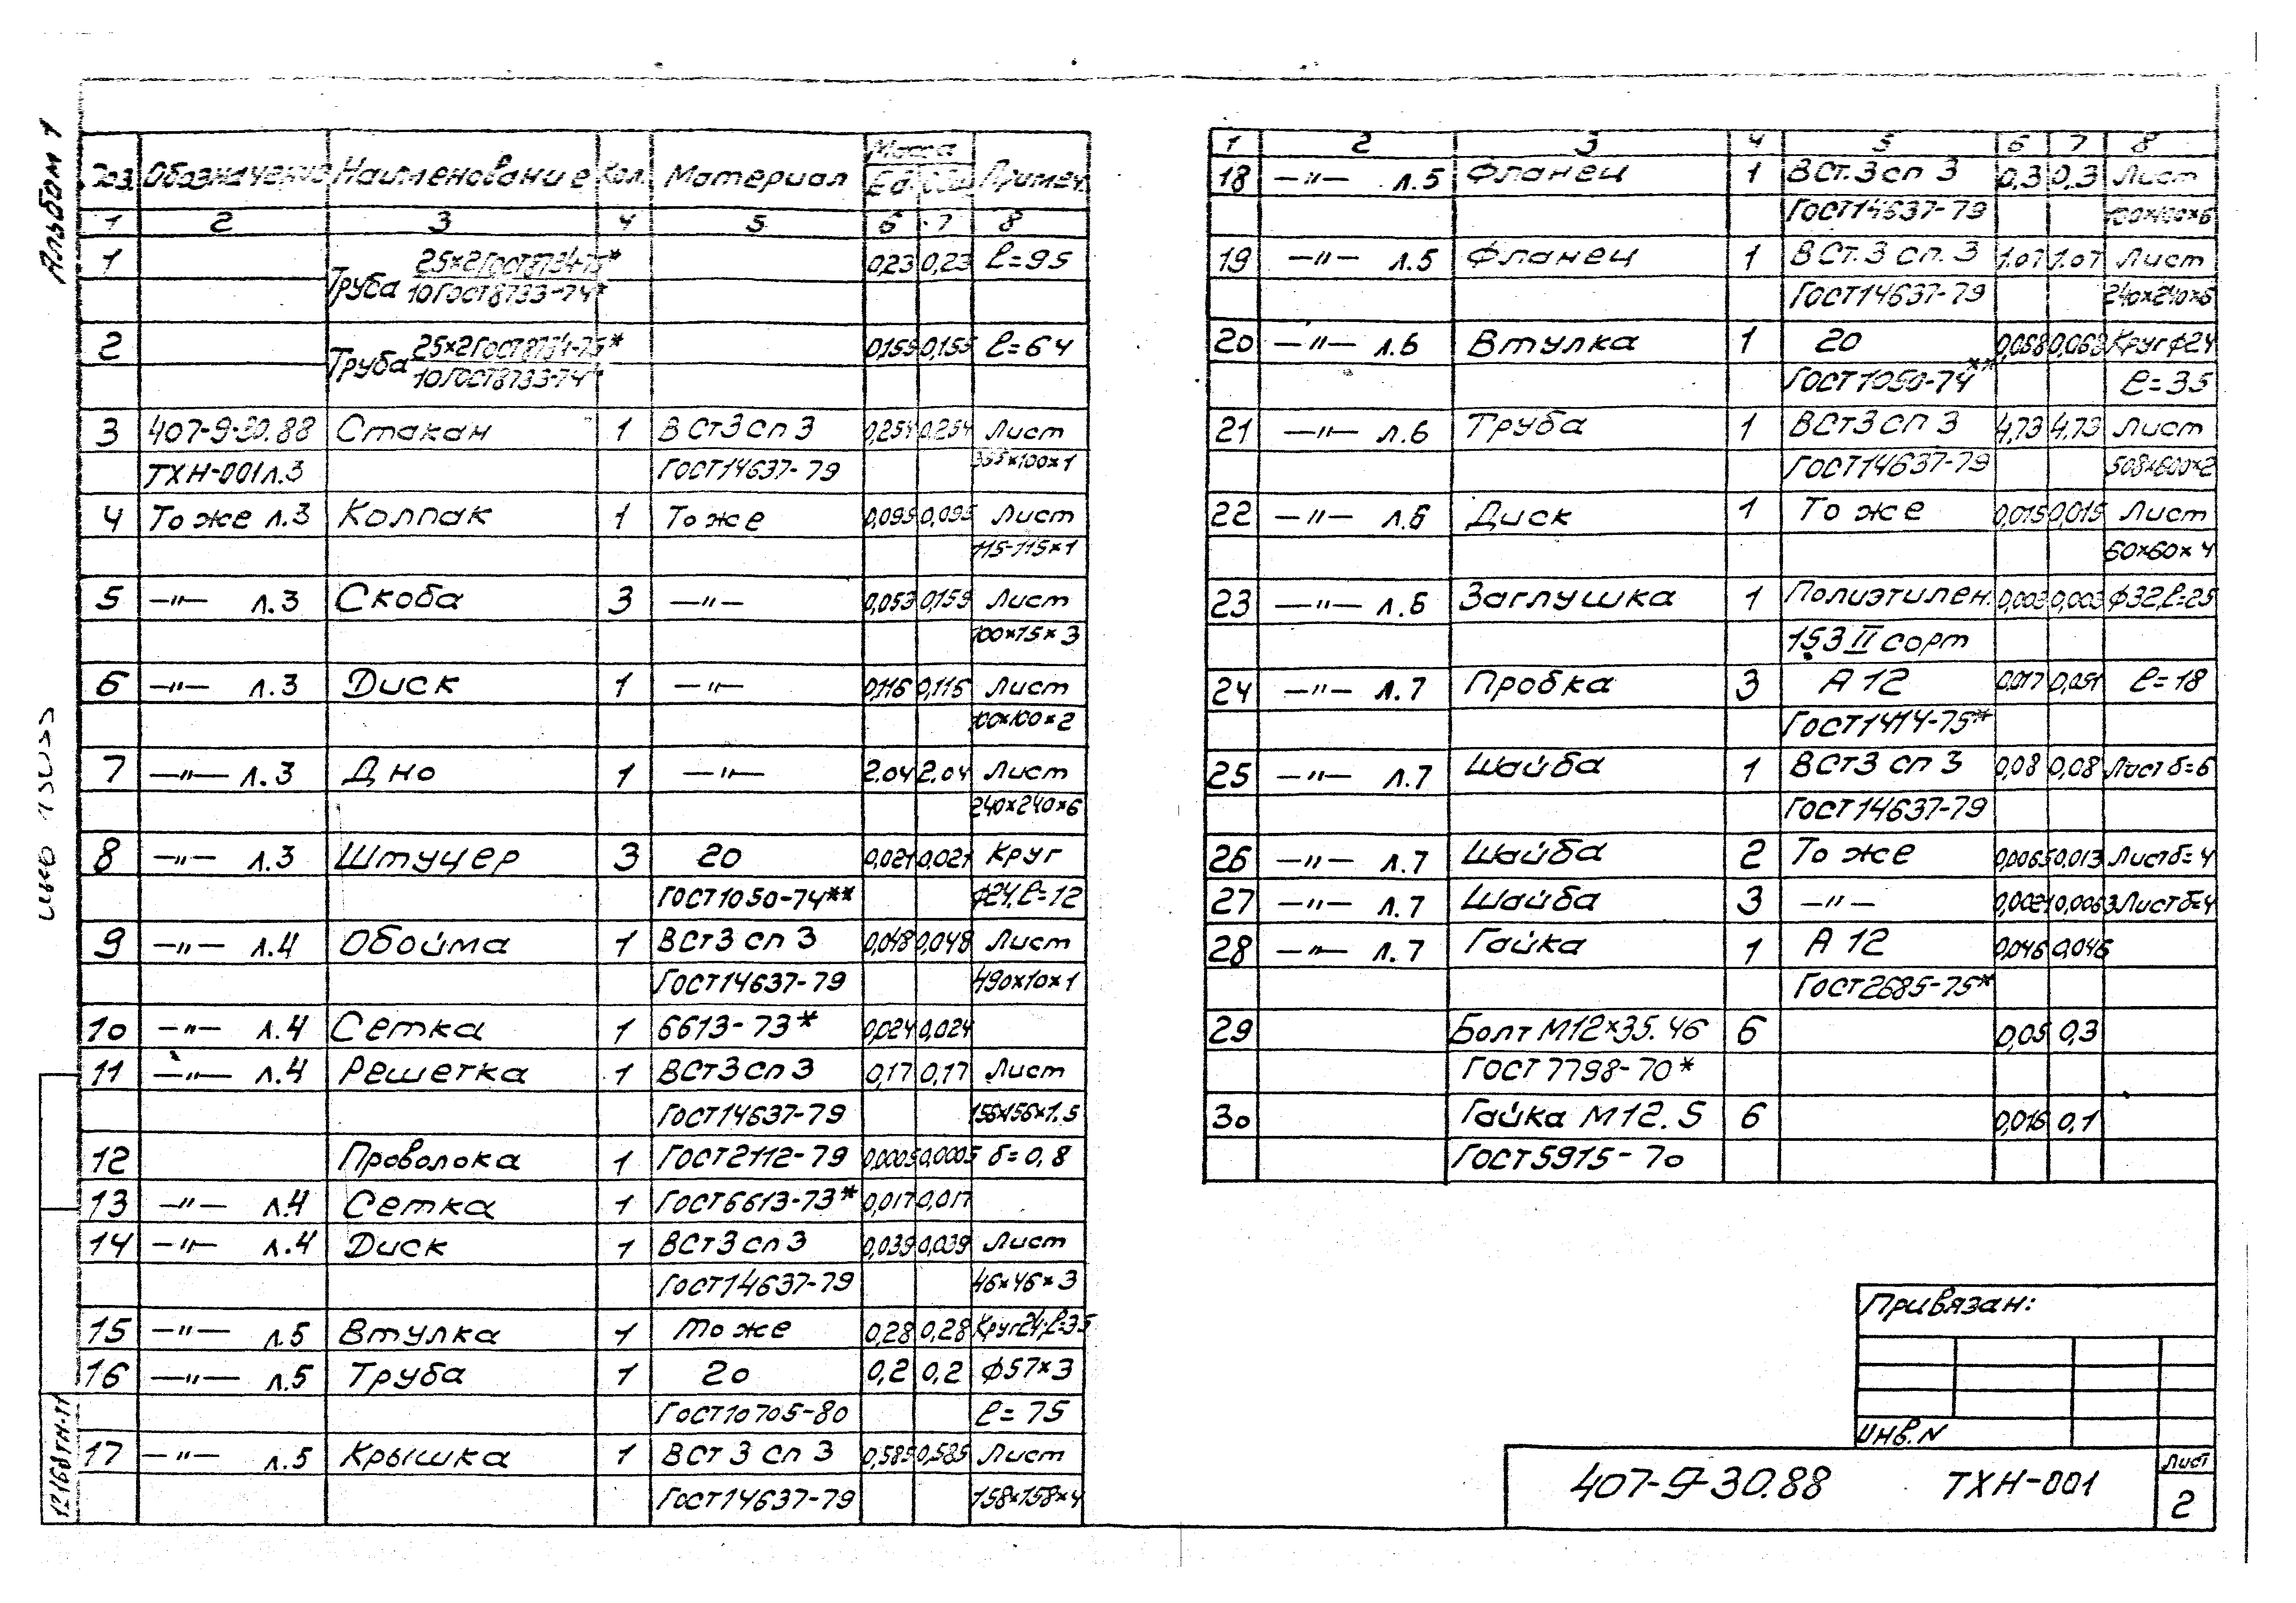 Альбом 1
Поз. Обозначение Наименование Кол. Материал Масса Ед. Общ. Примеч.
1 2 3 4 5 6 7 8
1 Труба 25×2 ГОСТ 8734-75* 0,23 0,23 ℓ=95
10 ГОСТ 8733-74*
2 Труба 25×2 ГОСТ 8734-75* 0,155 0,155 ℓ=64
10 ГОСТ 8733-74*
3 407-9-30.88 Стакан 1 ВСт3сп3 0,254 0,254 Лист
ТХН-001 л.3 ГОСТ 14637-79 335×100×1
4 То же л.3 Колпак 1 То же 0,095 0,095 Лист
115-115×1
5 —"— л.3 Скоба 3 —"— 0,053 0,159 Лист
100×15×3
6 —"— л.3 Диск 1 —"— 0,116 0,116 Лист
100×100×2
7 —"— л.3 Дно 1 —"— 2.04 2.04 Лист
240×240×6
8 —"— л.3 Штуцер 3 20 0,021 0,021 Круг
ГОСТ 1050-74** ф24, ℓ=12
9 —"— л.4 Обойма 1 ВСт3сп3 0,048 0,048 Лист
ГОСТ 14637-79 490×10×1
10 —"— л.4 Сетка 1 6613-73* 0,024 0,024
11 —"— л.4 Решетка 1 ВСт3сп3 0,17 0,17 Лист
ГОСТ 14637-79 156×156×1.5
12 Проволока 1 ГОСТ 2112-79 0,0005 0,0005 б=0,8
13 —"— л.4 Сетка 1 ГОСТ 6613-73* 0,017 0,017
14 —"— л.4 Диск 1 ВСт3сп3 0,039 0,039 Лист
ГОСТ 14637-79 46×46×3
15 —"— л.5 Втулка 1 то же 0,28 0,28 Круг 24; ℓ=35
16 —"— л.5 Труба 1 20 0,2 0,2 ф57×3
ГОСТ 10705-80 ℓ=75
17 —"— л.5 Крышка 1 ВСт3сп3 0,585 0,585 Лист
ГОСТ 14637-79 158×158×4
12168ТМ-Т1
1 2 3 4 5 6 7 8
18 —"— л.5 Фланец 1 ВСт.3сп3 0,3 0,3 Лист
ГОСТ 14637-79 100×100×6
19 —"— л.5 Фланец 1 ВСт.3сп.3 1.07 1.07 Лист
ГОСТ 14637-79 240×240×6
20 —"— л.6 Втулка 1 20 0,068 0,068 Круг ф24
ГОСТ 1050-74** ℓ=35
21 —"— л.6 Труба 1 ВСт3сп3 4,73 4.73 Лист
ГОСТ 14637-79 508×600×2
22 —"— л.6 Диск 1 То же 0,015 0,015 Лист
60×60×4
23 —"— л.6 Заглушка 1 Полиэтилен. 0,003 0,003 ф32, ℓ=25
153 II сорт
24 —"— л.7 Пробка 3 А12 0,017 0,051 ℓ=18
ГОСТ 1414-75*
25 —"— л.7 Шайба 1 ВСт3сп3 0,08 0,08 Лист б=6
ГОСТ 14637-79
26 —"— л.7 Шайба 2 То же 0,0065 0,013 Лист б=4
27 —"— л.7 Шайба 3 —"— 0,0021 0,0063 Лист б=4
28 —"— л.7 Гайка 1 А12 0,046 0,046
ГОСТ 2685-75*
29 Болт М12×35.46 6 0,05 0,3
ГОСТ 7798-70*
30 Гайка М12.5 6 0,016 0,1
ГОСТ 5915-70
Привязан:
Инв.N
407-9-30.88 ТХН-001
Лист
2